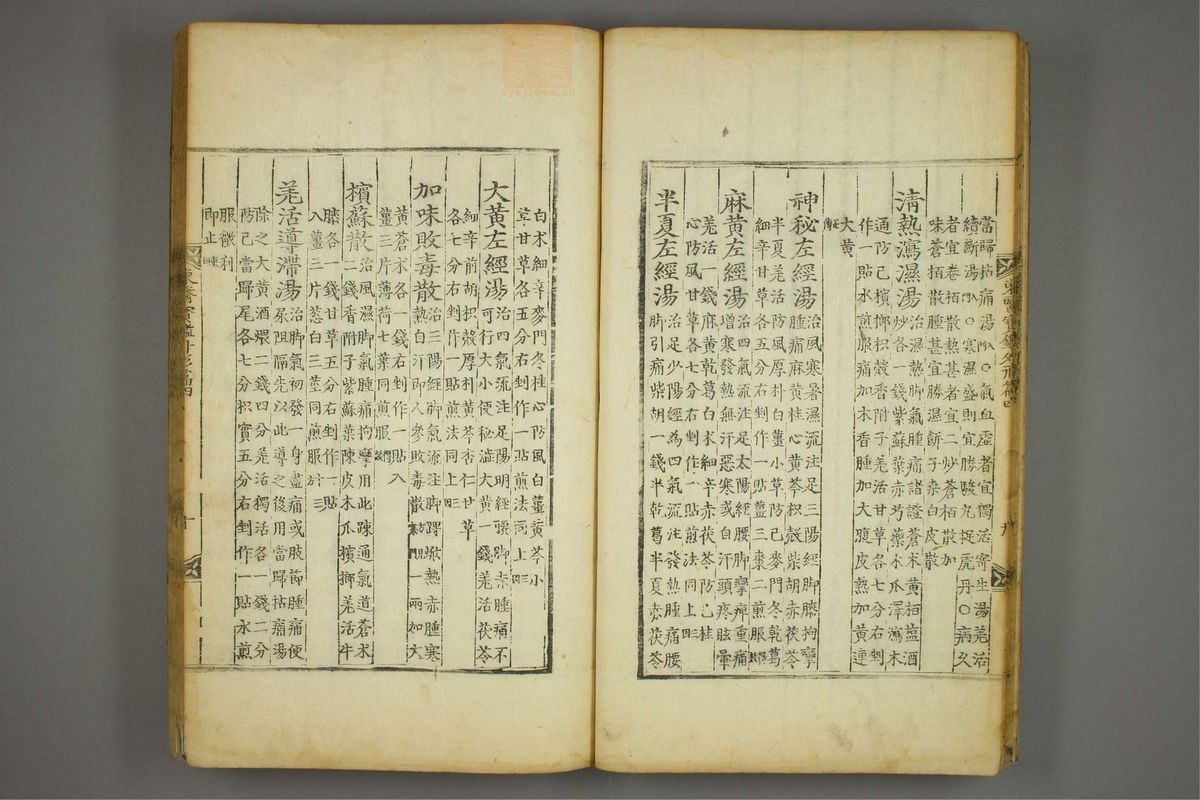 當歸拈痛湯方見上○氣血虛者宜獨活寄生湯羌活
續斷湯方見上○寒濕盛則宜勝駿丸捉虎丹○病久
者宜卷栢散熱甚者宜二炒蒼栢散加
味蒼栢散腫甚宜勝濕餅子桑白皮散
清熱瀉濕湯治濕熱脚氣腫痛諸證蒼朮黃栢並鹽酒
炒各一錢紫蘇葉赤芍藥木瓜澤瀉木
通防己檳榔枳殼香附子羌活甘草各七分右剉
作一貼水煎服痛加木香腫加大腹皮熱加黃連
大黃
神秘左經湯治風寒暑濕流注足三陽經脚膝拘攣
腫痛麻黃桂心黃芩枳殼柴胡赤茯苓
半夏羌活防風厚朴白薑小草防己麥門冬乾葛
細辛甘草各五分右剉作一貼薑三棗二煎服
麻黃左經湯治四氣流注足太陽經腰脚攣痺重痛
增寒發熱無汗惡寒或自汗頭疼眩暈
羌活一錢麻黃乾葛白朮細辛赤茯苓防己桂
心防風甘草各七分右剉作一貼煎法同上
半夏左經湯治足少陽經為四氣流注發熱腫痛腰
脇引痛柴胡一錢半乾葛半夏赤茯苓
白朮細辛麥門冬桂心防風白薑黃芩小
草甘草各五分右剉作一貼煎法同上
大黃左經湯治四氣流注足陽明經腰脚赤腫痛不
可行大小便秘澁大黃一錢羌活茯苓
細辛前胡枳殼厚朴黃芩杏仁甘草
各七分右剉作一貼煎法同上
加味敗毒散治三陽經脚氣流注脚踝焮熱赤腫寒
熱自汗即人參敗毒散一兩加大
黃蒼朮各一錢右剉作一貼入
薑三片薄荷七葉同煎服
檳蘇散治風濕脚氣腫痛拘攣用此疎通氣道蒼朮
二錢香附子紫蘇葉陳皮木瓜檳榔羌活牛
膝各一錢甘草五分右剉作一貼
入薑三片葱白三莖同煎服
羌活導滯湯治脚氣初發一身盡痛或肢節腫痛便
尿阻隔先以此導之後用當歸拈痛湯
除之大黃酒煨二錢四分羌活獨活各一錢二分
防己當歸尾各七分枳實五分右剉作一貼水煎
服微利
即止